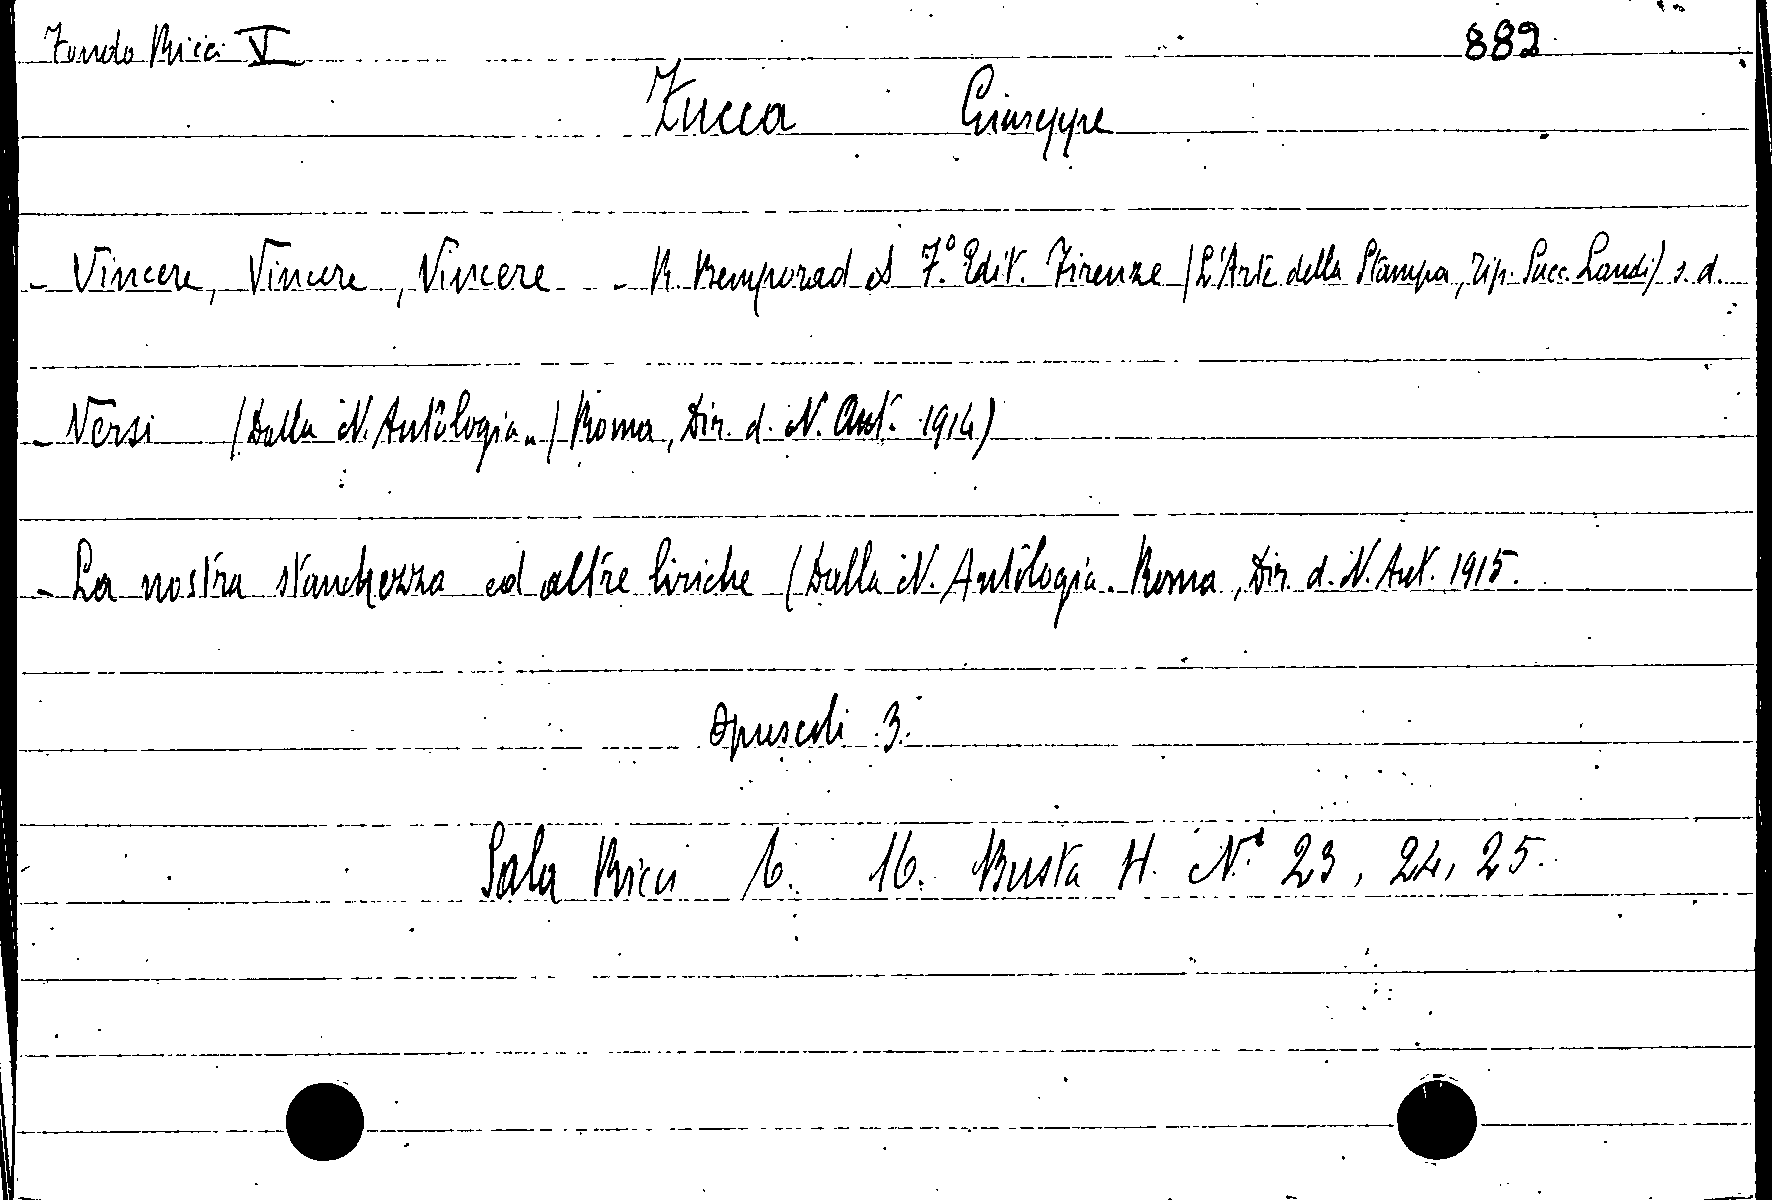 Fondo Ricci V 882
Zucca Giuseppe
- Vincere, Vincere, Vincere - R. Bemporad & F.o Edit. Firenze (L'Arte della Stampa, Tip. Succ. Landi) s. d.
- Versi (Dalla N. Antologia„) Roma, Dir. d. N. Ant. 1914)
- La nostra stanchezza ed altre liriche (Dalla N. Antologia. Roma, Dir. d. N. Ant. 1915.
Opuscoli 3.
Sala Ricci 6. 16. Busta H. N.i 23, 24, 25.